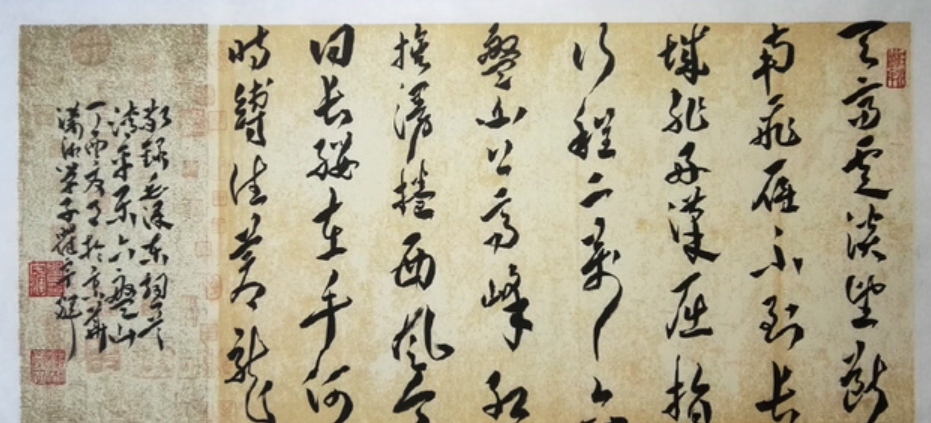 天高雲淡望斷
南飛雁不到長
城非好漢屈指
行程二萬六
盤山上高峰紅
旗漫捲西風今
日長纓在手何
時縛住蒼龍
敬錄毛澤東詞
清平樂六盤山
丁酉夏月於京華
瀟湘子